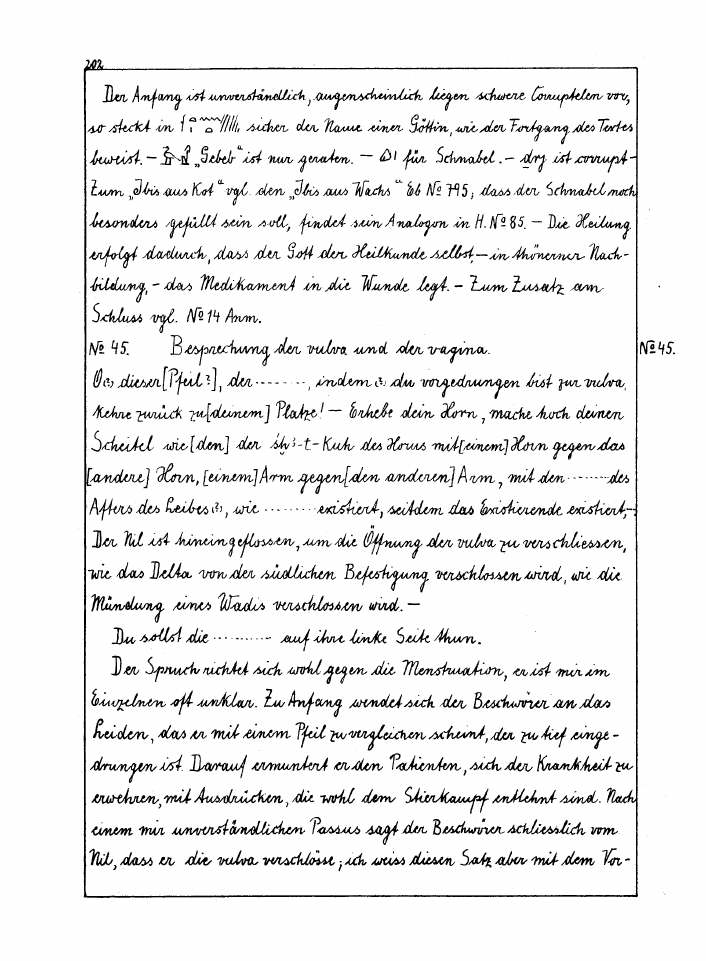 202
Der Anfang ist unverständlich, augenscheinlich liegen schwere Corruptelen vor,
so steckt in sicher der Name einer Göttin, wie der Fortgang des Textes
beweist. – „Gebeb“ ist nur geraten. – für Schnabel. – drj ist corrupt –
Zum „Ibis aus Kot“ vgl. den „Ibis aus Wachs“ Eb № 795; dass der Schnabel noch
besonders gefüllt sein soll, findet sein Analogon in H. № 85. – Die Heilung
erfolgt dadurch, dass der Gott der Heilkunde selbst – in thönerner Nach-
bildung, – das Medikament in die Wunde legt. – Zum Zusatz am
Schluss vgl. № 14 Anm.
№ 45. Besprechung der vulva und der vagina. № 45.
O(?) dieser [Pfeil?], der ........, indem(?) du vorgedrungen bist zur vulva,
kehre zurück zu [deinem] Platze! – Erhebe dein Horn, mache hoch deinen
Scheitel wie [den] der -t-Kuh des Horus mit [einem] Horn gegen das
[andere] Horn, [einem] Arm gegen [den anderen] Arm, mit den ....... des
Afters des Leibes(?), wie ......... existiert, seitdem das Existierende existiert, –
Der Nil ist hineingeflossen, um die Öffnung der vulva zu verschliessen,
wie das Delta von der südlichen Befestigung verschlossen wird, wie die
Mündung eines Wadis verschlossen wird. –
Du sollst die ........... auf ihre linke Seite thun.
Der Spruch richtet sich wohl gegen die Menstruation, er ist mir im
Einzelnen oft unklar. Zu Anfang wendet sich der Beschwörer an das
Leiden, das er mit einem Pfeil zu vergleichen scheint, der zu tief einge-
drungen ist. Darauf ermuntert er den Patienten, sich der Krankheit zu
erwehren, mit Ausdrücken, die wohl dem Stierkampf entlehnt sind. Nach
einem mir unverständlichen Passus sagt der Beschwörer schliesslich vom
Nil, dass er die vulva verschlösse; ich weiss diesen Satz aber mit dem Vor-